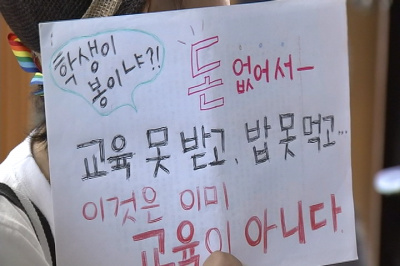 학생이
봉이냐?!
돈 없어서-
교육 못 받고, 밥 못 먹고...
이것은 이미
교육이 아니다.